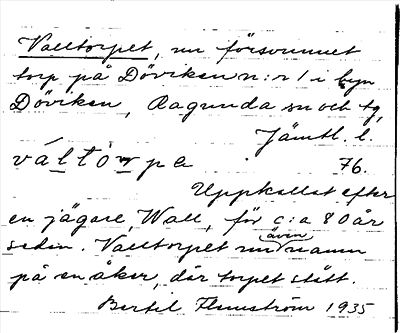 Valltorpet, nu försvunnet
torp på Döviken n:r 1 i byn
Döviken, Ragunda sn och tg,
Jämtl. l.
váltòrpe 76.
Uppkallat efter
en jägare, Wall, för c:a 80 år
sedan. Valltorpet nu även namn
på en åker, där torpet stått.
Bertel Flemström 1935